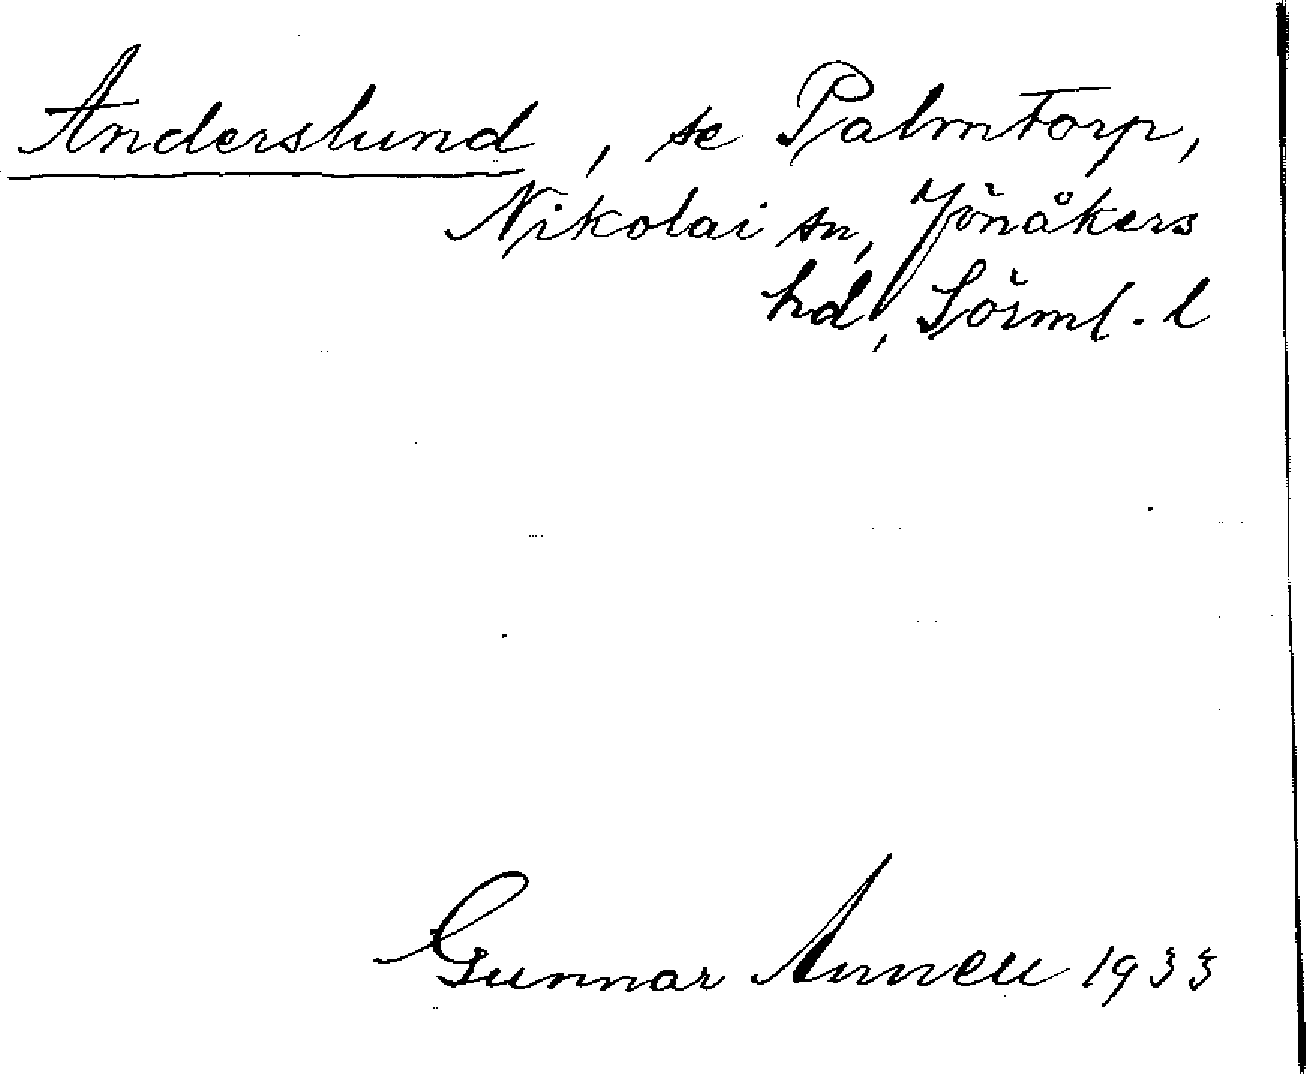 Anderslund, se Palmtorp,
Nikolai sn, Jönåkers
hd, Sörml. l
Gunnar Annell 1933